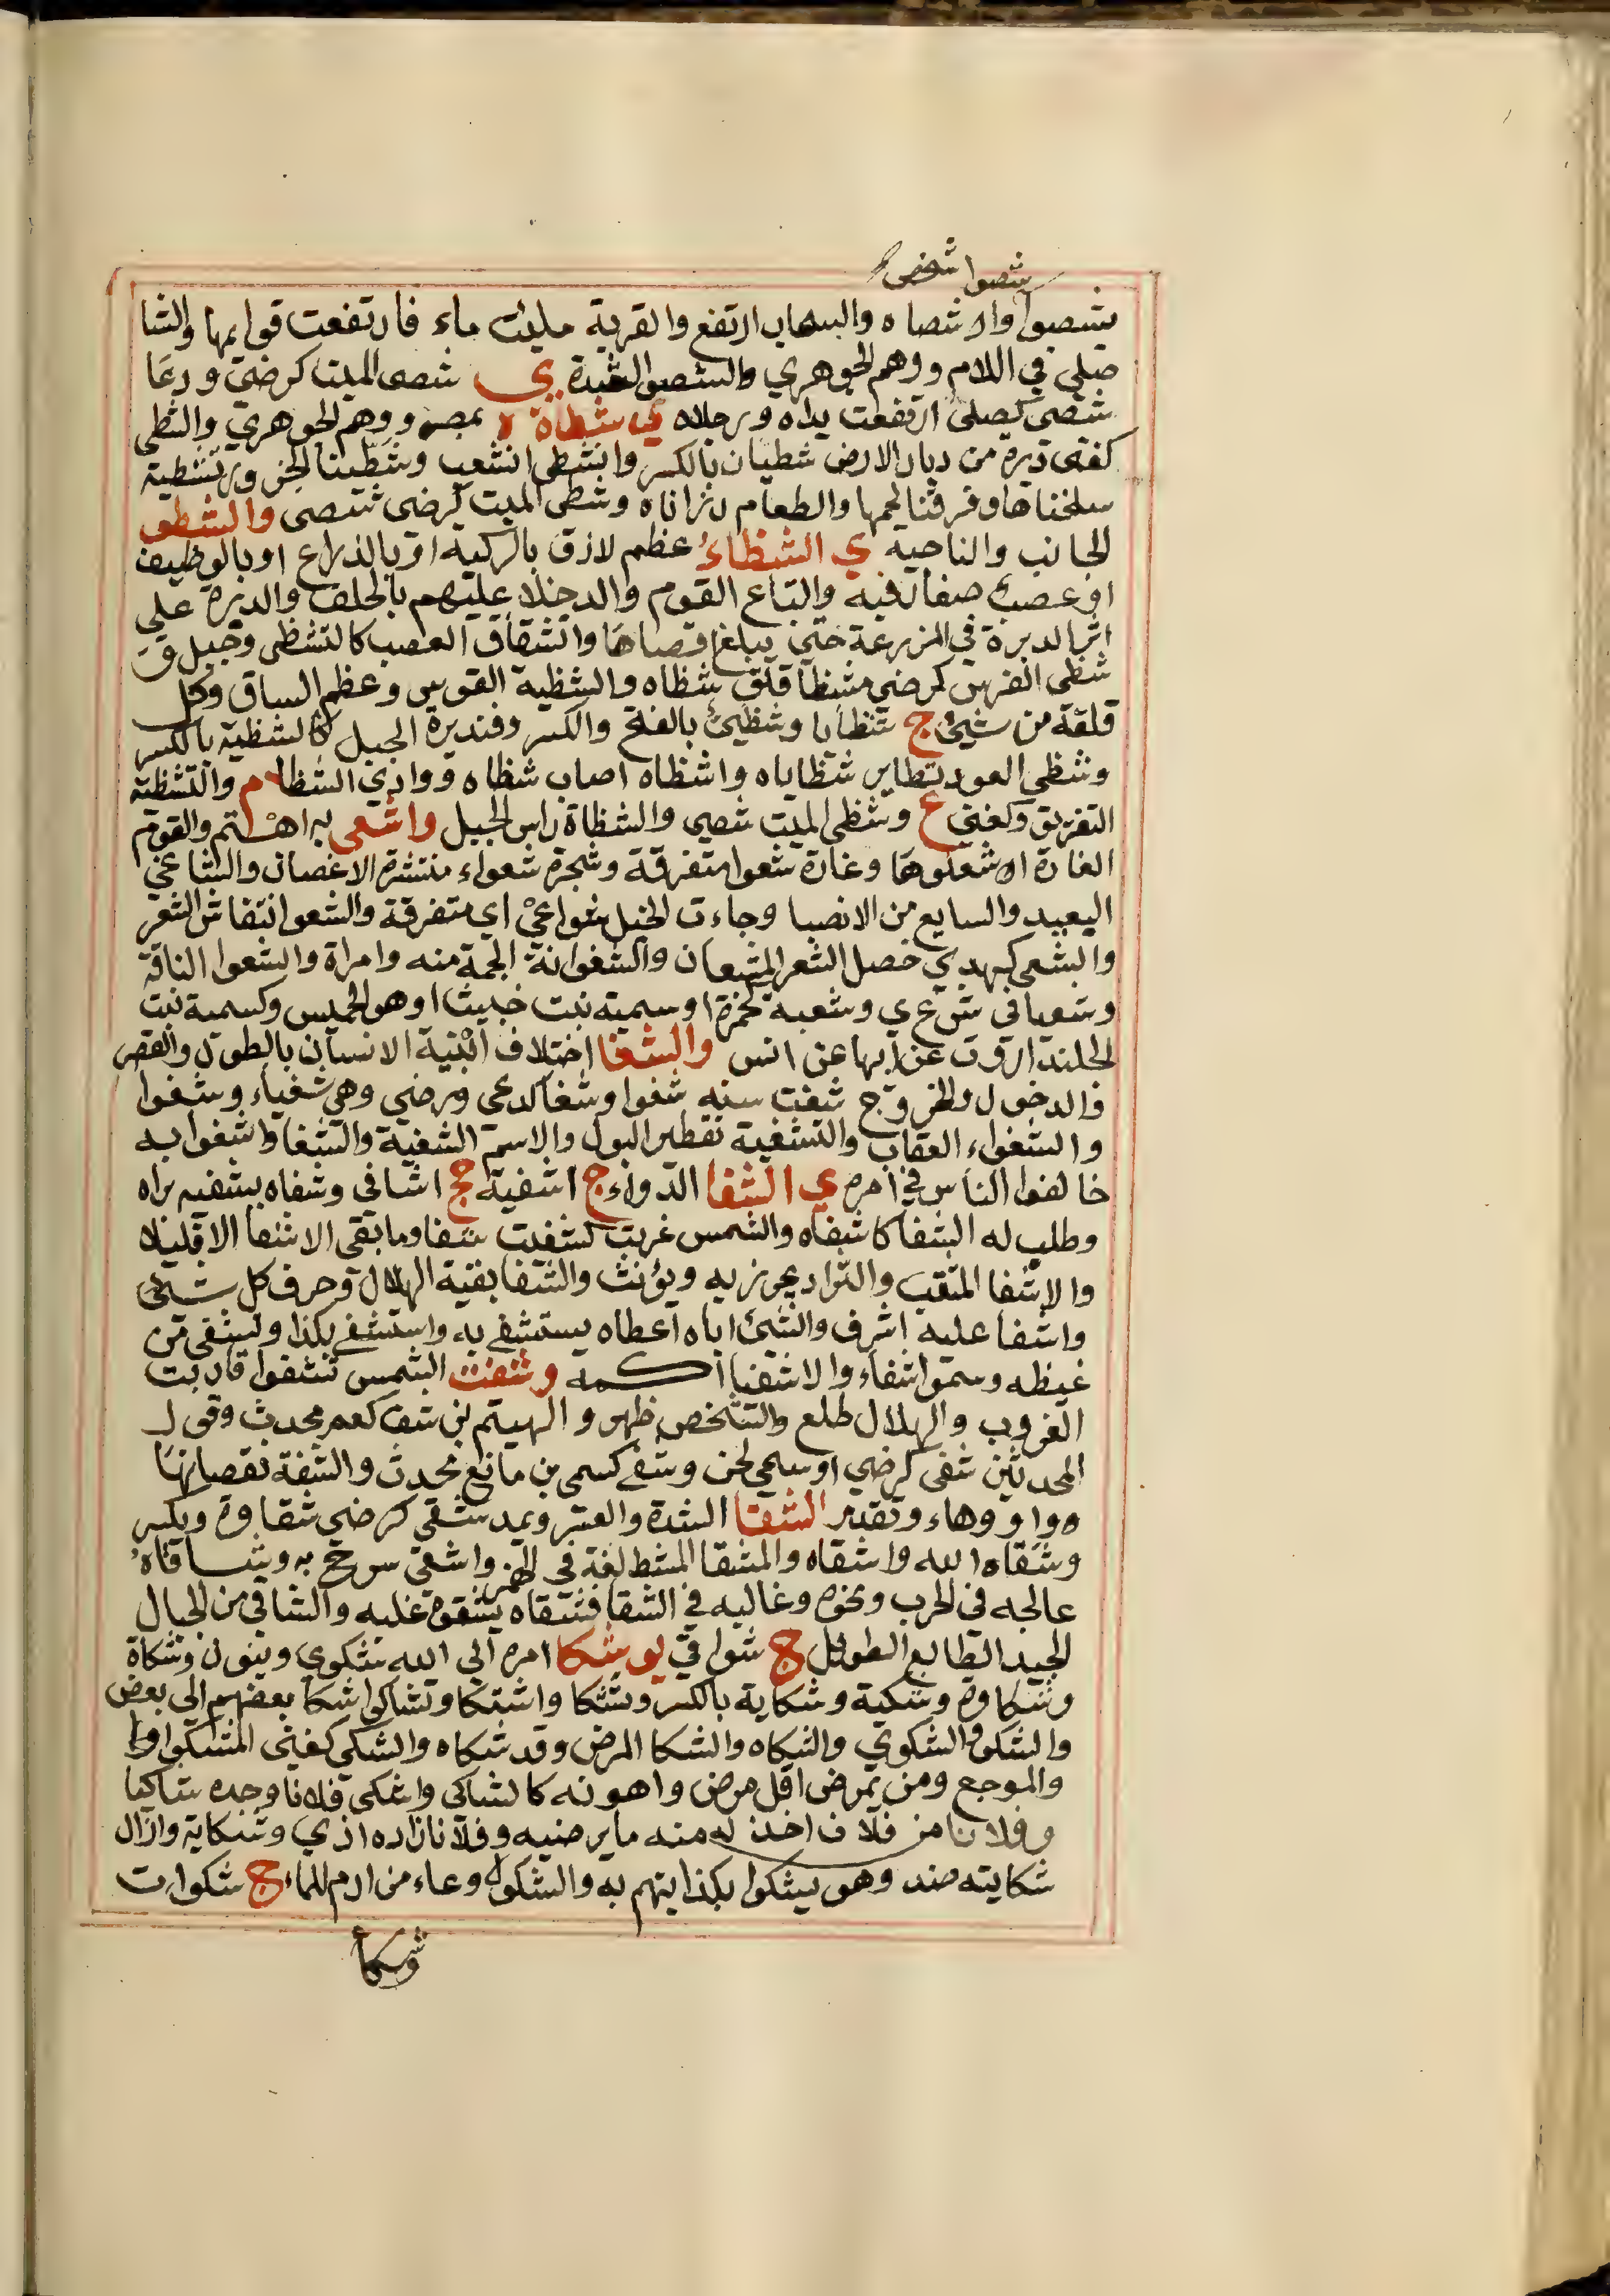 شصوا شخص
يشصوا واشصاه والسحاب ارتفع والقربة مليئت ماء فارتفعت قوايمها والشا
صلي في اللام ووهم الجوهري والشصو الشدة ي شصى الميت كرضي ودعا
شصى كصلى ارتفعت يداه ورجلاه ي شطاة ة بمصر ووهم الجوهري والشطي
كغني دبرة من ديار الارض شطيان بالكسر وانشطى انشعب وشطينا الجزور تشطية
سلخناها وفرقنا لحمها والطعام رزاناه وشطى الميت كرضى شصى والشطو
الجانب والناحية ي الشظاء عظم لازق بالركبة او بالذراع او بالوظيف
او عصب صغار فيه واتباع القوم والدخلا عليهم بالحلف والدبرة على
اثر الدبرة في المزرعة حتى يبلغ اقصاها وانشقاق العصب كالتشظى وجبل ق
شظي الفرس كرضي شظا فلق شظاه والشظية القوس وعظم الساق وكل
فلقة من شيئ ج شظايا وشظيئ بالفتح والكسر وفنديرة الجبل كالشظية بالكسر
وشظي العود تطاير شظاياه واشظاه اصاب شظاه ووادي الشظا م والتشظية
التفريق وكغني ع وشظى الميت شصى والشظاة راس الجبل واشعى به اهتم والقوم
الغارة اشعلوها وغارة شعوا متفرقة وشجرة شعواء منتشرة الاغصان والشاعي
البعيد والسايع من الانصبا وجاءت الخيل شواعي اي متفرقة والشعو انتفاش الشعر
والشعى كهدي خصل الشعر المشعان والشعوانة الجمة منه وامراة والشعوا الناقة
وشعيا في ش ع ي وشعبة كحمزة او سمية بنت خبيث او هو الحميس وكسمية بنت
الجلندا روت عن ابيها عن انس والشغا اختلاف ابنية الاسنان بالطول والقصر
والدخول والخروج شغت سنه شغوا وشغا كدعى ورضي وهي شغياء وشغوا
والشغواء العقاب والتشغية تقطير البول والاسم الشغية والشغا واشغوا به
خالفوا الناس في امره ي الشفا الدواء ج اشفية جج اشافي وشفاه يشفيه براه
وطلب له الشفا كاشفاه والشمس غربت كشفيت شفا وما بقى الا شفا الا قليلا
والاشفا المثقب والسراد يحرز به ويؤنث والشفا بقية الهلال وحرف كل شيئ
واشفا عليه اشرف والشيئ اياه اعطاه يستشفي به واستشفى بكذا وتشفى من
غيظه وسموا شفاء والاشفيا اكمة وشفت الشمس تشفوا قاربت
الغروب والهلال طلع والشخص ظهر والهيثم بن شف كعمر محدث وقول
المحدثين شفى كرضي او سمي لحن وشفى كسمى بن مانع محدث والشفة نقصانها
ه واو وهاء وتقدير الشقا الشدة والعسر ويمد شقى كرضي شقاوة ويكسر
وشقاه الله واشقاه والمشقا المشط لغة في الهمز واشقى سرح به وشاقاه
عالجه في الحرب ونحوه وغالبه في الشقا فشقاه يشقوة غلبه والشاقي من الجبال
الجيد الطالع الطويل ج شواقي يو شكا امره الى الله شكوي وينون وشكاة
وشكاوة وشكية وشكاية بالكسر وتشكا واشتكا وتشاكوا شكا بعضهم الى بعض
والشكو والشكوي والشكاه والشكا المرض وقد شكاه والشكى كغني المشكوا وا
والموجع ومن يمرض اقل مرض واهونه كالشاكي واشكى فلانا وجده شاكيا
وفلانا من فلان اخذ له منه ما يرضيه وفلانا زاده اذي وشكاية وازال
شكايته ضد وهو يشكوا بكذا يتهم به والشكوة وعاء من ادم للماء ج شكوات
وشكا